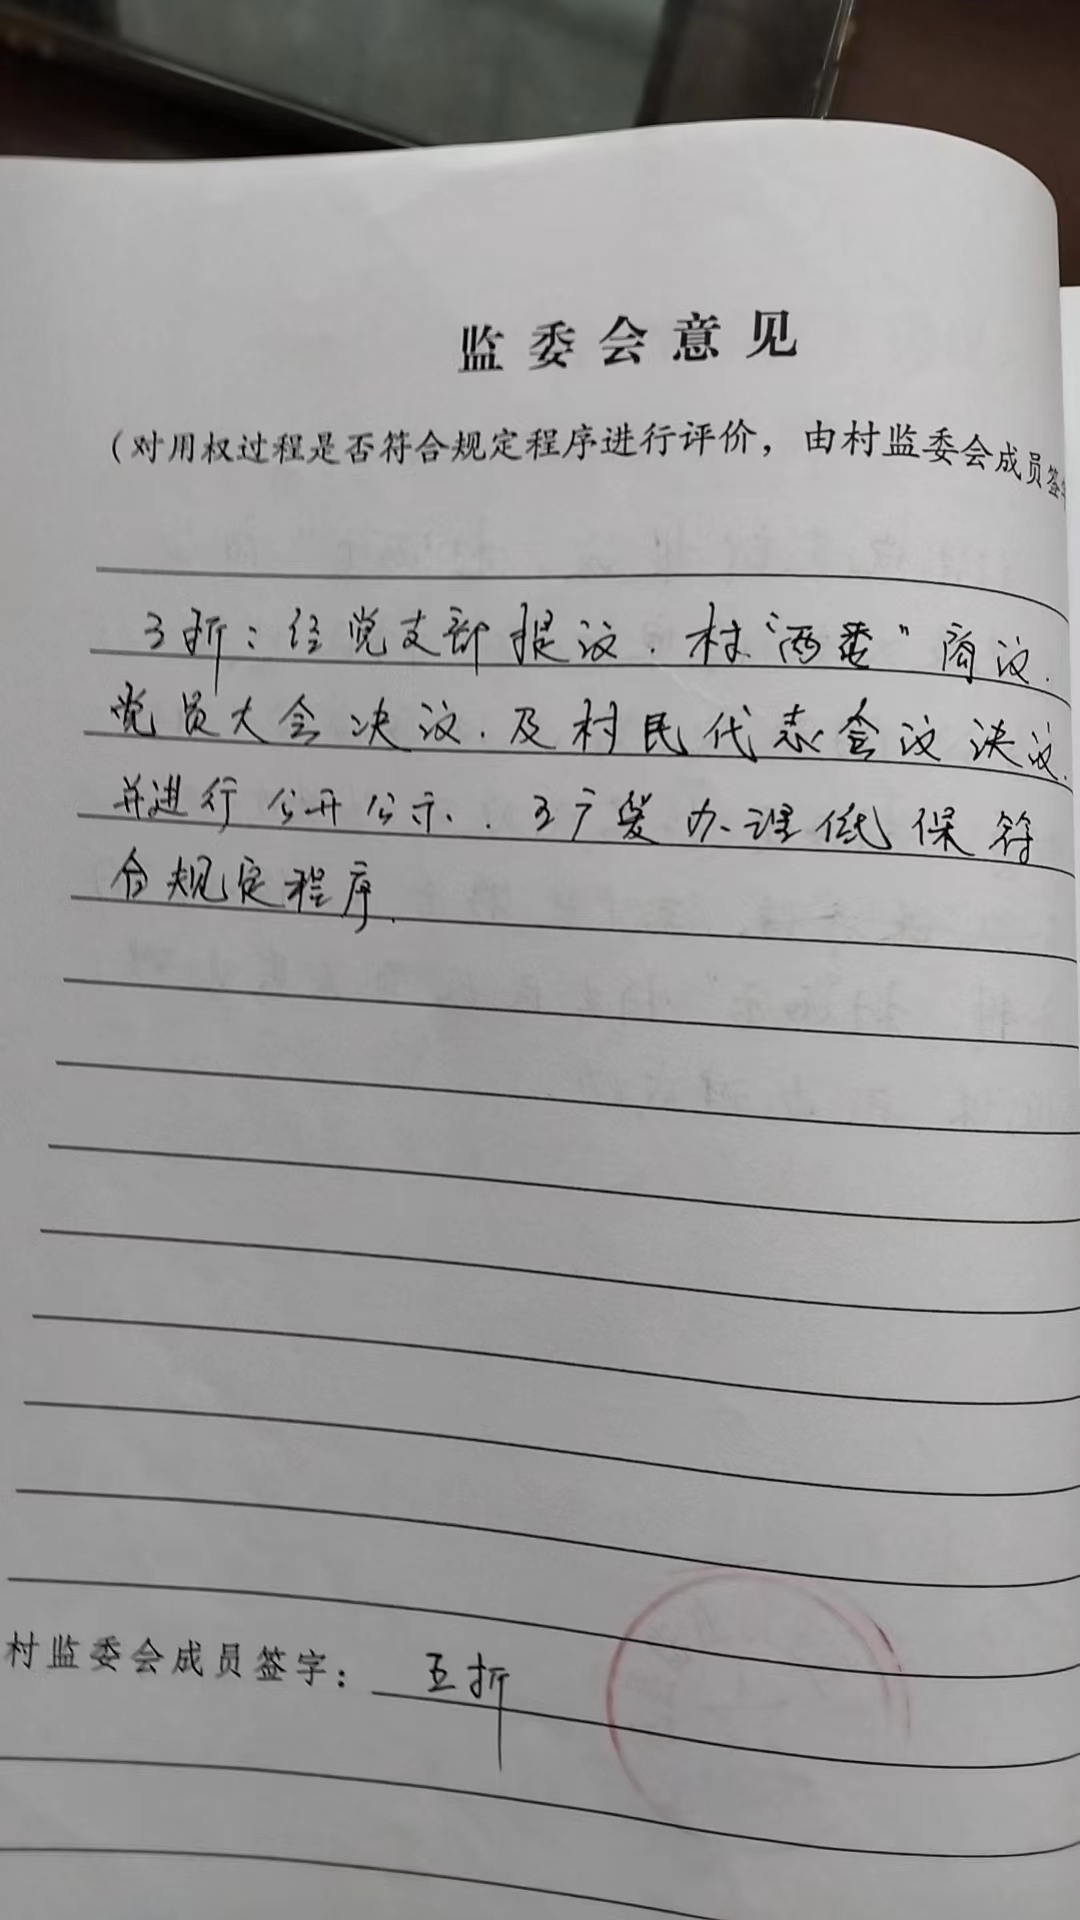 监委会意见
（对用权过程是否符合规定程序进行评价，由村监委会成员签字
王折：经党支部提议．村“两委”商议．
党员大会决议．及村民代表会议决议．
并进行公开公示．王广爱办理低保符
合规定程序．
村监委会成员签字：王折